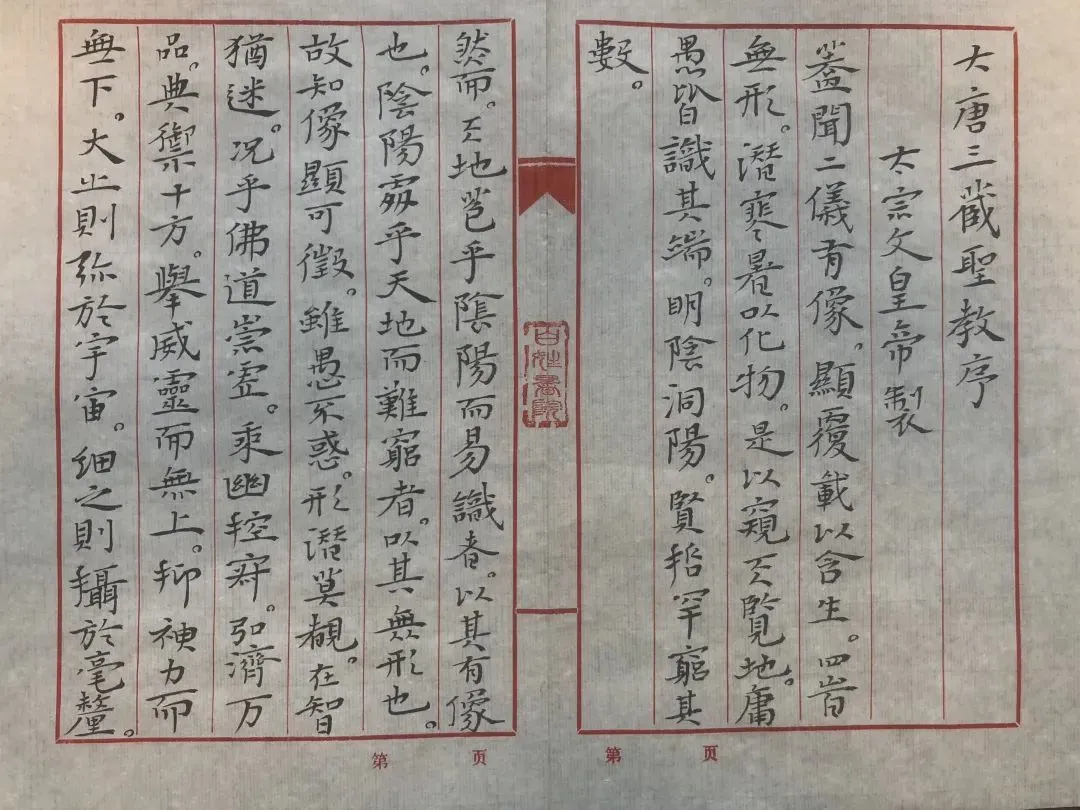 大唐三藏聖教序
太宗文皇帝製
蓋聞二儀有像。顯覆載以含生。四旹
無形。潛寒暑以化物。是以窺天覽地。庸
愚皆識其端。明陰洞陽。賢哲罕窮其
數。
第 页
百姓書院
然而。天地苞乎陰陽而易識者。以其有像
也。陰陽處乎天地而難窮者。以其無形也。
故知像顯可徵。雖愚不惑。形潛莫覩。在智
猶迷。况乎佛道崇虛。乘幽控寂。弘濟万
品。典禦十方。舉威靈而無上。抑神力而
無下。大之則弥於宇宙。細之則攝於毫釐。
第 页